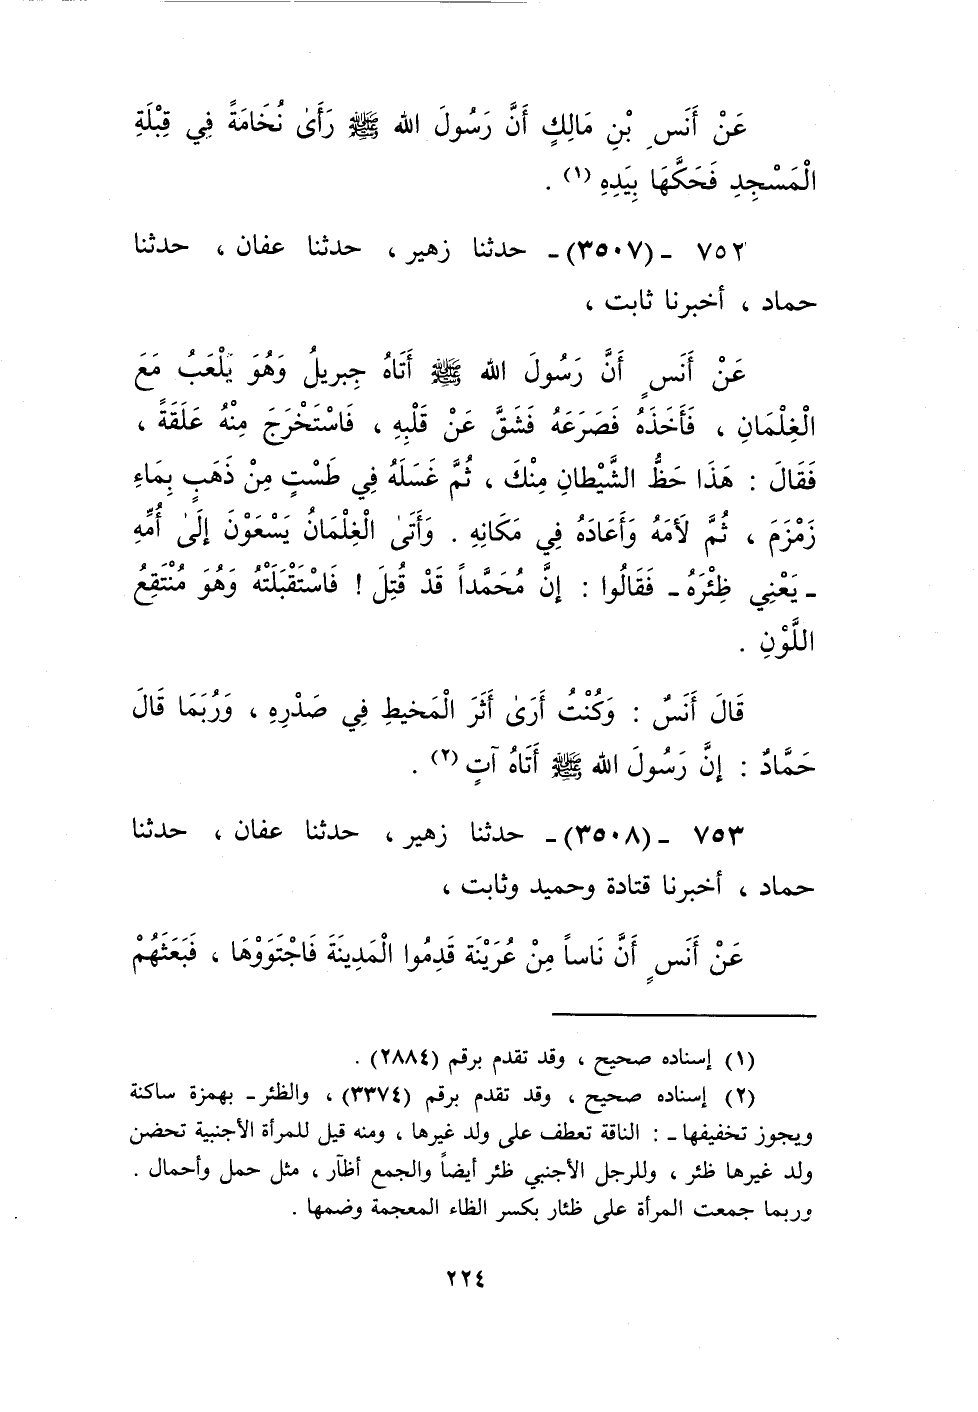 عَنْ أَنَسِ بْنِ مَالِكٍ أَنَّ رَسُولَ الله ﷺ رَأَىٰ نُخَامَةً فِي قِبْلَةِ
الْمَسْجِدِ فَحَكَّهَا بِيَدِهِ (١) .
٧٥٢ ـ (٣٥٠٧) ـ حدثنا زهير ، حدثنا عفان ، حدثنا
حماد ، أخبرنا ثابت ،
عَنْ أَنَسٍ أَنَّ رَسُولَ الله ﷺ أَتَاهُ جِبريلُ وَهُوَ يَلْعَبُ مَعَ
الْغِلْمَانِ ، فَأَخَذَهُ فَصَرَعَهُ فَشَقَّ عَنْ قَلْبِهِ ، فَاسْتَخْرَجَ مِنْهُ عَلَقَةً ،
فَقَالَ : هَذَا حَظُّ الشَّيْطانِ مِنْكَ ، ثُمَّ غَسَلَهُ فِي طَسْتٍ مِنْ ذَهَبٍ بِمَاءِ
زَمْزَمَ ، ثُمَّ لَأَمَهُ وَأَعَادَهُ فِي مَكَانِهِ . وَأَتَىٰ الْغِلْمَانُ يَسْعَوْنَ إِلَىٰ أُمِّهِ
ـ يَعْنِي ظِئْرَهُ ـ فَقَالُوا : إِنَّ مُحَمَّداً قَدْ قُتِلَ ! فَاسْتَقْبَلَتْهُ وَهُوَ مُنْتَقِعُ
اللَّوْنِ .
قَالَ أَنَسٌ : وَكُنْتُ أَرَىٰ أَثَرَ الْمَخيطِ فِي صَدْرِهِ ، وَرُبَمَا قَالَ
حَمَّادٌ : إِنَّ رَسُولَ الله ﷺ أَتَاهُ آتٍ (٢) .
٧٥٣ ـ (٣٥٠٨) ـ حدثنا زهير ، حدثنا عفان ، حدثنا
حماد ، أخبرنا قتادة وحميد وثابت ،
عَنْ أَنَسٍ أَنَّ نَاساً مِنْ عُرَيْنَة قَدِمُوا الْمَدِينَةَ فَاجْتَوَوْهَا ، فَبَعَثَهُمْ
(١) إسناده صحيح ، وقد تقدم برقم (٢٨٨٤) .
(٢) إسناده صحيح ، وقد تقدم برقم (٣٣٧٤) ، والظئر ـ بهمزة ساكنة
ويجوز تخفيفها ـ : الناقة تعطف على ولد غيرها ، ومنه قيل للمرأة الأجنبية تحضن
ولد غيرها ظئر ، وللرجل الأجنبي ظئر أيضاً والجمع أظآر ، مثل حمل وأحمال .
وربما جمعت المرأة على ظئار بكسر الظاء المعجمة وضمها .
٢٢٤